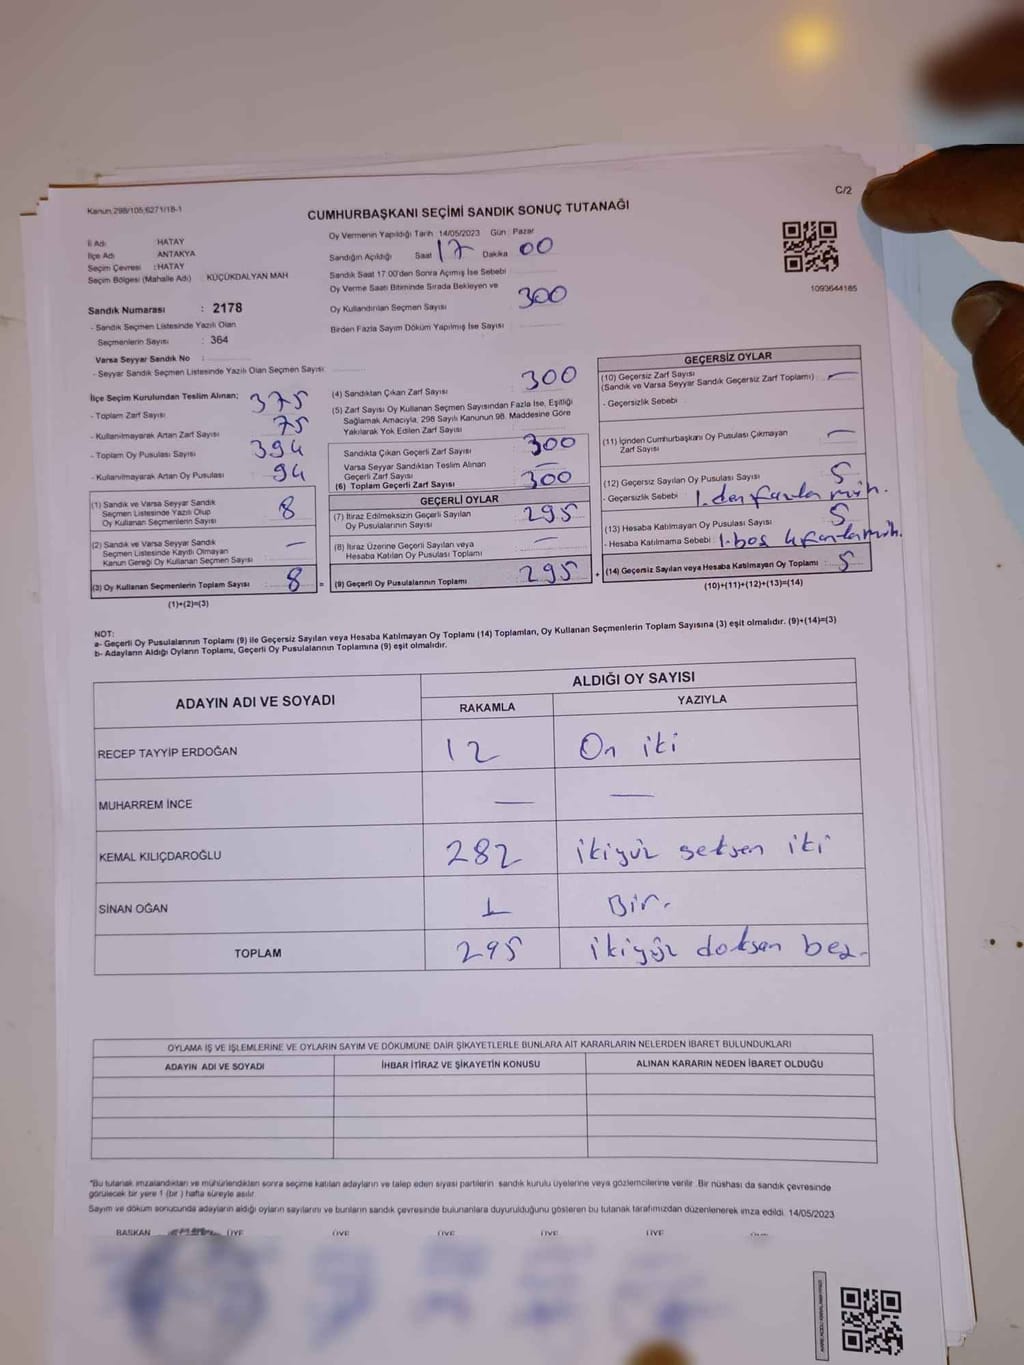 Kanun:298/105;6271/18-1
C/2
CUMHURBAŞKANI SEÇİMİ SANDIK SONUÇ TUTANAĞI
İl Adı HATAY
İlçe Adı ANTAKYA
Seçim Çevresi :HATAY
Seçim Bölgesi (Mahalle Adı) : KÜÇÜKDALYAN MAH
Sandık Numarası : 2178
- Sandık Seçmen Listesinde Yazılı Olan
Seçmenlerin Sayısı : 364
Varsa Seyyar Sandık No :
- Seyyar Sandık Seçmen Listesinde Yazılı Olan Seçmen Sayısı:
Oy Vermenin Yapıldığı Tarih 14/05/2023 Gün : Pazar
Sandığın Açıldığı Saat 17 Dakika 00
Sandık Saat 17:00'den Sonra Açımış İse Sebebi
Oy Verme Saati Bitiminde Sırada Bekleyen ve
Oy Kullandırılan Seçmen Sayısı 300
Birden Fazla Sayım Döküm Yapılmış İse Sayısı
1093644185
İlçe Seçim Kurulundan Teslim Alınan;
- Toplam Zarf Sayısı 375
- Kullanılmayarak Artan Zarf Sayısı 75
- Toplam Oy Pusulası Sayısı 394
- Kullanılmayarak Artan Oy Pusulası 94
(1) Sandık ve Varsa Seyyar Sandık
Seçmen Listesinde Yazılı Olup
Oy Kullanan Seçmenlerin Sayısı 8
(2) Sandık ve Varsa Seyyar Sandık
Seçmen Listesinde Kaydı Olmayan
Kanun Gereği Oy Kullanan Seçmen Sayısı —
(3) Oy Kullanan Seçmenlerin Toplam Sayısı 8 =
(1)+(2)=(3)
(4) Sandıktan Çıkan Zarf Sayısı 300
(5) Zarf Sayısı Oy Kullanan Seçmen Sayısından Fazla İse, Eşitliği
Sağlamak Amacıyla, 298 Sayılı Kanunun 98. Maddesine Göre
Yakılarak Yok Edilen Zarf Sayısı
Sandıkta Çıkan Geçerli Zarf Sayısı 300
Varsa Seyyar Sandıktan Teslim Alınan
Geçerli Zarf Sayısı —
(6) Toplam Geçerli Zarf Sayısı 300
GEÇERLİ OYLAR
(7) İtiraz Edilmeksizin Geçerli Sayılan
Oy Pusulalarının Sayısı 295
(8) İtiraz Üzerine Geçerli Sayılan veya
Hesaba Katılan Oy Pusulası Toplamı —
(9) Geçerli Oy Pusulalarının Toplamı 295 +
GEÇERSİZ OYLAR
(10) Geçersiz Zarf Sayısı
(Sandık ve Varsa Seyyar Sandık Geçersiz Zarf Toplamı) —
- Geçersizlik Sebebi
(11) İçinden Cumhurbaşkanı Oy Pusulası Çıkmayan
Zarf Sayısı —
(12) Geçersiz Sayılan Oy Pusulası Sayısı 5
- Geçersizlik Sebebi 1.den fazla müh.
(13) Hesaba Katılmayan Oy Pusulası Sayısı 5
- Hesaba Katılmama Sebebi 1.boş 4.fazla müh.
(14) Geçersiz Sayılan veya Hesaba Katılmayan Oy Toplamı 5
(10)+(11)+(12)+(13)=(14)
NOT:
a- Geçerli Oy Pusulalarının Toplamı (9) ile Geçersiz Sayılan veya Hesaba Katılmayan Oy Toplamı (14) Toplamları, Oy Kullanan Seçmenlerin Toplam Sayısına (3) eşit olmalıdır. (9)+(14)=(3)
b- Adayların Aldığı Oyların Toplamı, Geçerli Oy Pusulalarının Toplamına (9) eşit olmalıdır.
ADAYIN ADI VE SOYADI ALDIĞI OY SAYISI
RAKAMLA YAZIYLA
RECEP TAYYİP ERDOĞAN 12 On iki
MUHARREM İNCE — —
KEMAL KILIÇDAROĞLU 282 ikiyüz seksen iki
SİNAN OĞAN 1 Bir.
TOPLAM 295 ikiyüz doksan beş.
OYLAMA İŞ VE İŞLEMLERİNE VE OYLARIN SAYIM VE DÖKÜMÜNE DAİR ŞİKAYETLERLE BUNLARA AİT KARARLARIN NELERDEN İBARET BULUNDUKLARI
ADAYIN ADI VE SOYADI İHBAR İTİRAZ VE ŞİKAYETİN KONUSU ALINAN KARARIN NEDEN İBARET OLDUĞU
*Bu tutanak imzalandıktan ve mühürlendikten sonra seçime katılan adayların ve talep eden siyasi partilerin sandık kurulu üyelerine veya gözlemcilerine verilir. Bir nüshası da sandık çevresinde
görülecek bir yere 1 (bir) hafta süreyle asılır.
Sayım ve döküm sonucunda adayların aldığı oyların sayılarını ve bunların sandık çevresinde bulunanlara duyurulduğunu gösteren bu tutanak tarafımızdan düzenlenerek imza edildi. 14/05/2023
BAŞKAN ÜYE ÜYE ÜYE ÜYE ÜYE